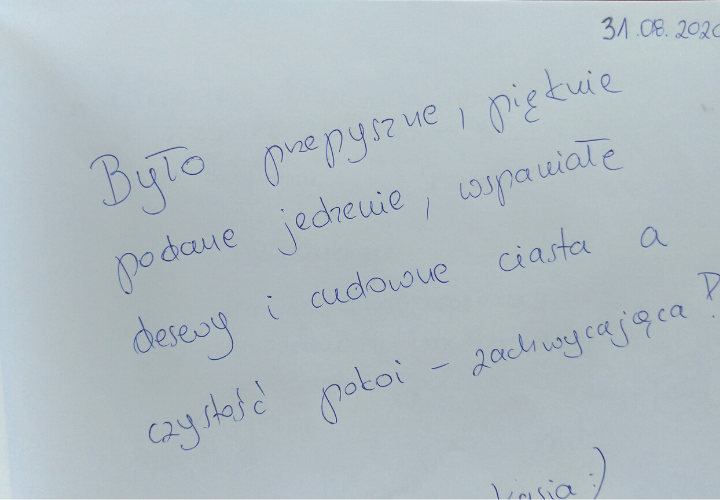 31.08.2020
Było przepyszne, pięknie
podane jedzenie, wspaniałe
desery i cudowne ciasta a
czystość pokoi - zachwycająca!
Kasia :)